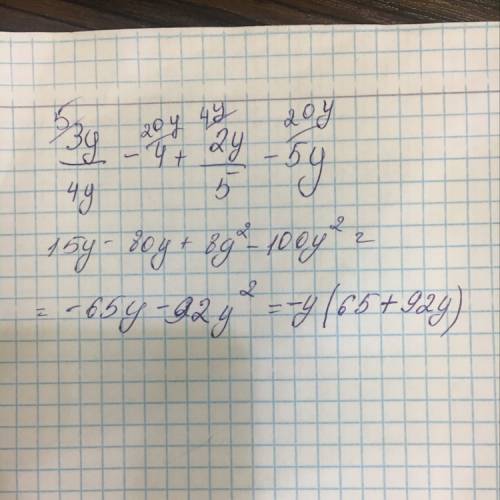 5 20y 4y 20y
3y/4y - 4 + 2y/5 - 5y
15y - 80y + 8y² - 100y² =
= -65y - 92y² = -y(65+92y)